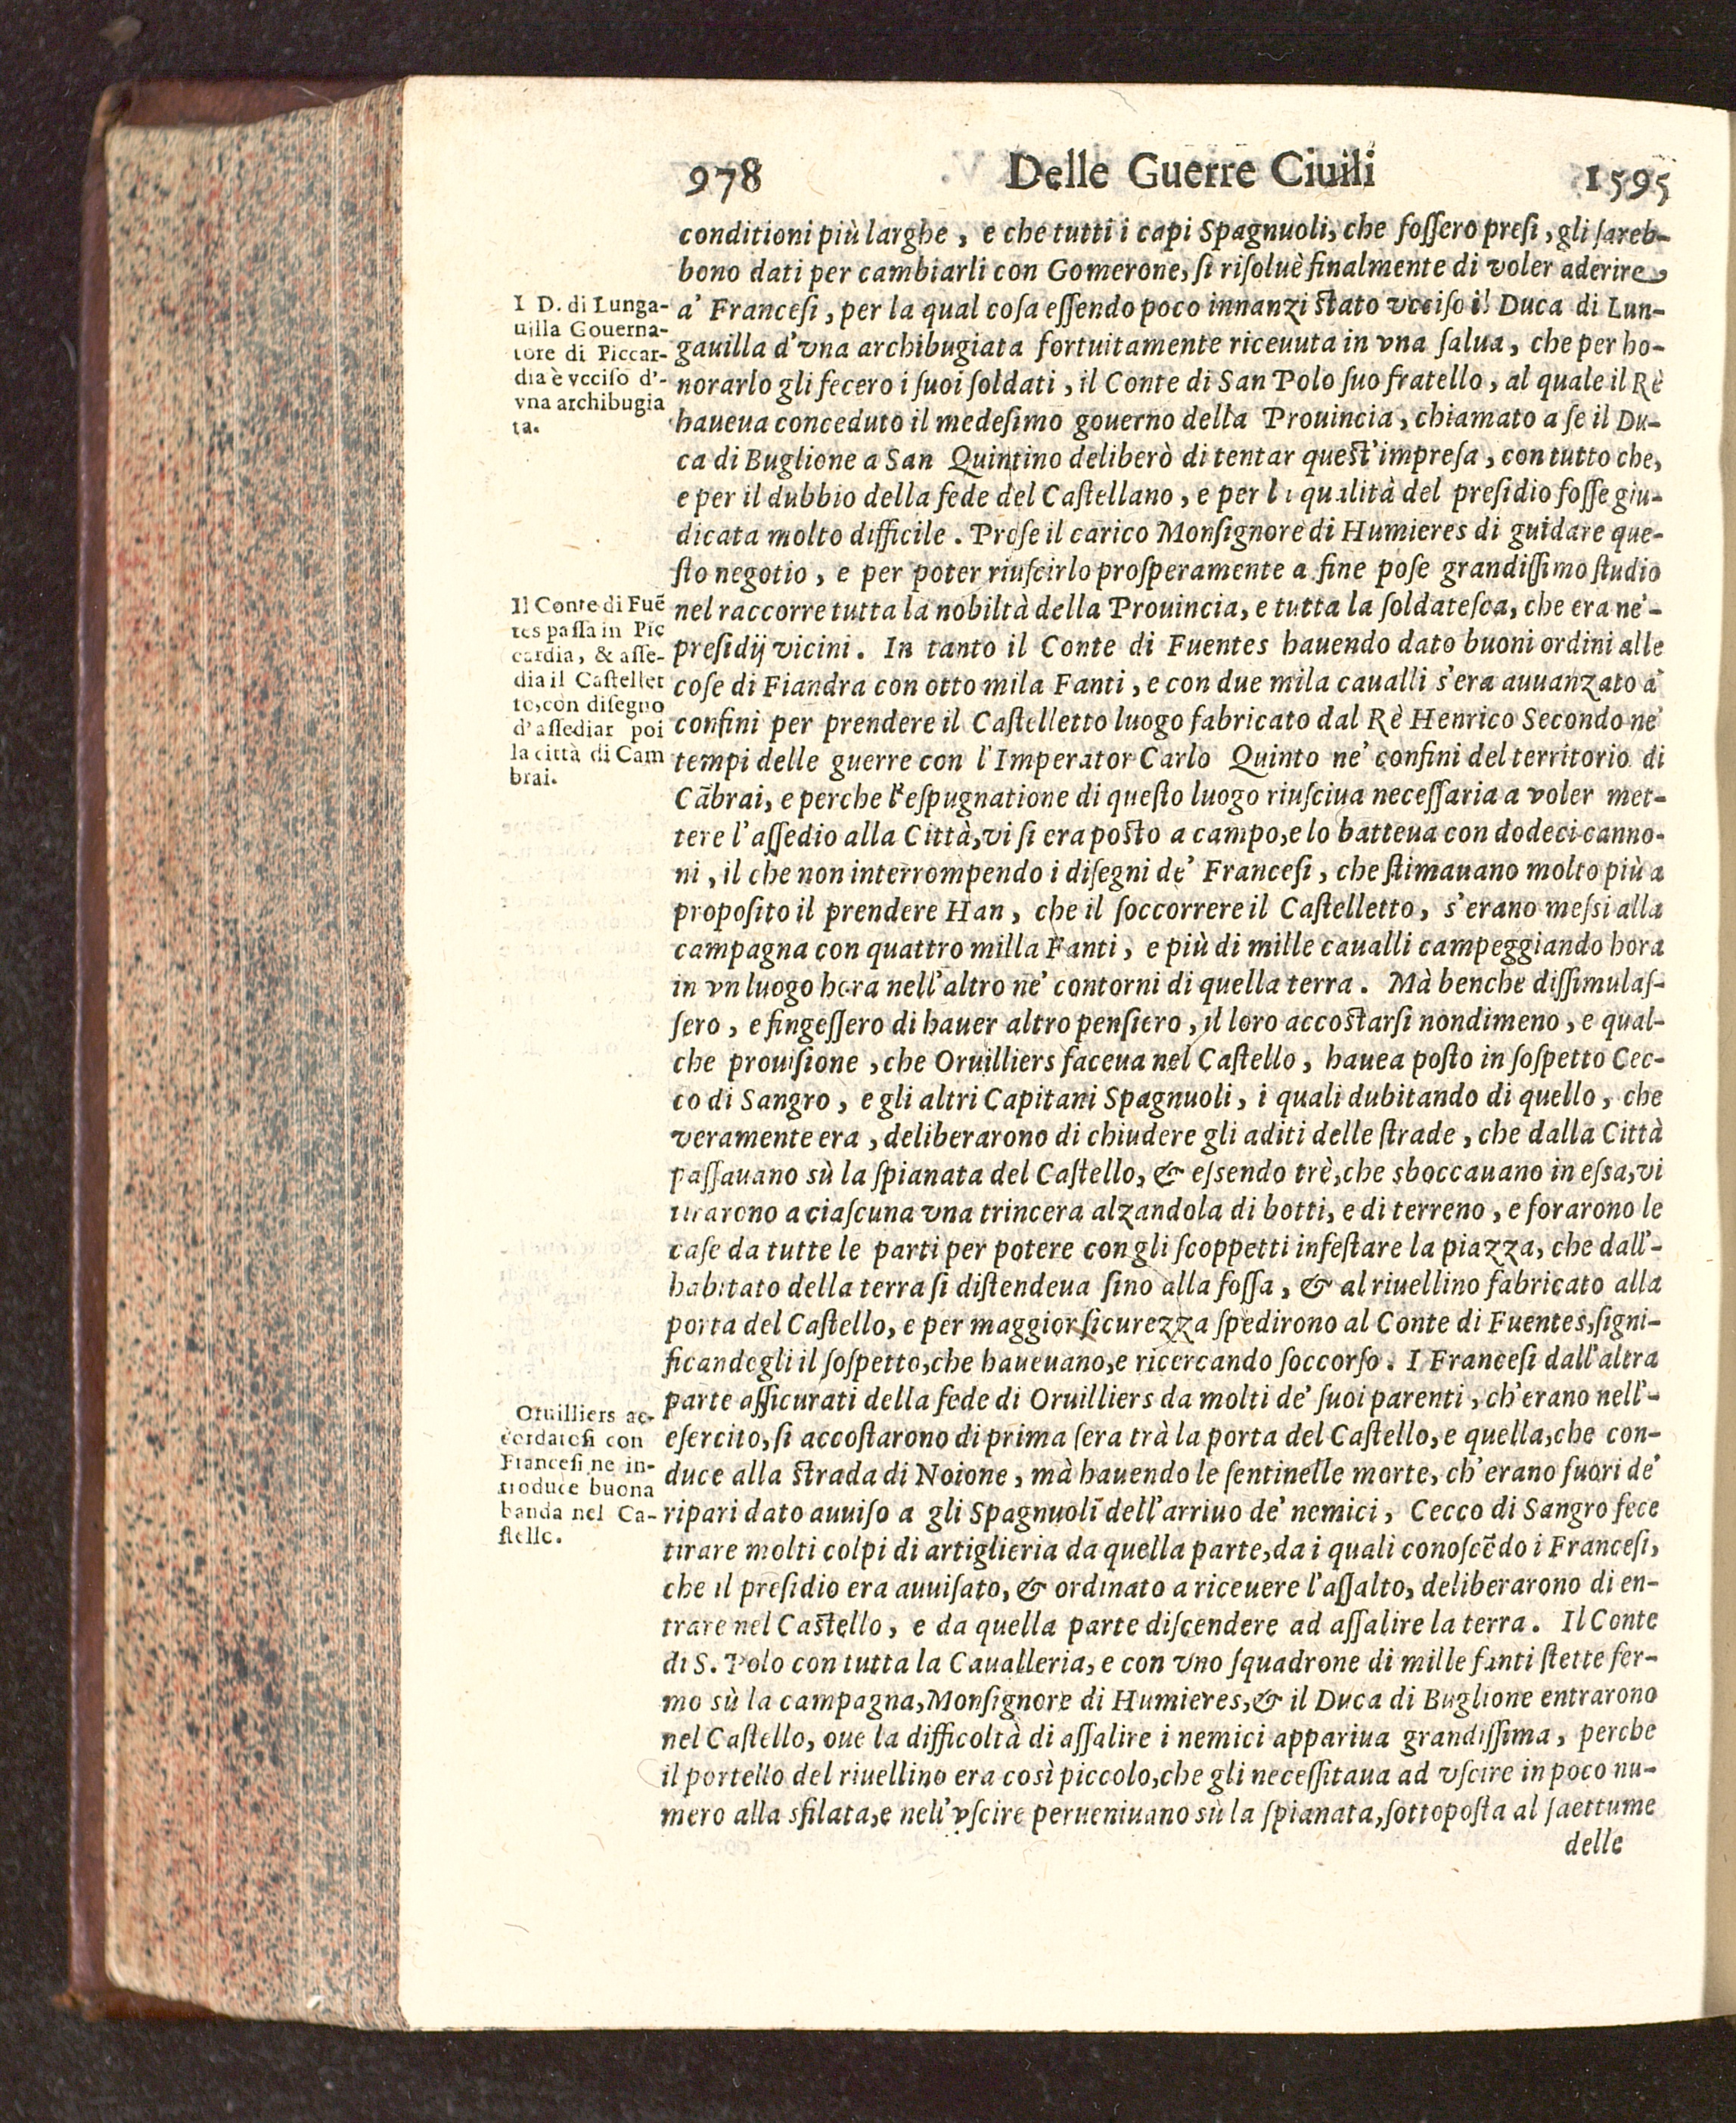 978 Delle Guerre Ciuili 1595
conditioni più larghe, e che tutti i capi Spagnuoli, che foſſero preſi, gli ſareb-
bono dati per cambiarli con Gomerone, ſi riſoluè finalmente di voler aderire
a' Franceſi, per la qual coſa eſſendo poco innanzi ſtato vcciſo il Duca di Lun-
gauilla d'vna archibugiata fortuitamente riceuuta in vna ſalua, che per ho-
norarlo gli fecero i ſuoi ſoldati, il Conte di San Polo ſuo fratello, al quale il Rè
haueua conceduto il medeſimo gouerno della Prouincia, chiamato a ſe il Du-
ca di Buglione a San Quintino deliberò di tentar queſt'impreſa, con tutto che,
e per il dubbio della fede del Caſtellano, e per la qualità del preſidio foſſe giu-
dicata molto difficile. Preſe il carico Monſignore di Humieres di guidare que-
ſto negotio, e per poter riuſcirlo proſperamente a fine poſe grandiſſimo ſtudio
nel raccorre tutta la nobiltà della Prouincia, e tutta la ſoldateſca, che era ne'-
preſidij vicini. In tanto il Conte di Fuentes hauendo dato buoni ordini alle
coſe di Fiandra con otto mila Fanti, e con due mila caualli s'era auuanzato a'
confini per prendere il Caſtelletto luogo fabricato dal Rè Henrico Secondo ne'
tempi delle guerre con l'Imperator Carlo Quinto ne' confini del territorio di
Cãbrai, e perche l'eſpugnatione di queſto luogo riuſciua neceſſaria a voler met-
tere l'aſſedio alla Città, vi ſi era poſto a campo, e lo batteua con dodeci canno-
ni, il che non interrompendo i diſegni de' Franceſi, che ſtimauano molto più a
propoſito il prendere Han, che il ſoccorrere il Caſtelletto, s'erano meſsi alla
campagna con quattro milla Fanti, e più di mille caualli campeggiando hora
in vn luogo hora nell'altro ne' contorni di quella terra. Mà benche diſſimulaſ-
ſero, e fingeſſero di hauer altro penſiero, il loro accoſtarſi nondimeno, e qual-
che prouiſione, che Oruilliers faceua nel Caſtello, hauea poſto in ſoſpetto Cec-
co di Sangro, e gli altri Capitani Spagnuoli, i quali dubitando di quello, che
veramente era, deliberarono di chiudere gli aditi delle ſtrade, che dalla Città
paſſauano sù la ſpianata del Caſtello, & eſsendo trè, che sboccauano in eſsa, vi
tirarono a ciaſcuna vna trincera alzandola di botti, e di terreno, e forarono le
caſe da tutte le parti per potere con gli ſcoppetti infeſtare la piazza, che dall'-
habitato della terra ſi diſtendeua ſino alla foſſa, & al riuellino fabricato alla
porta del Caſtello, e per maggior ſicurezza ſpedirono al Conte di Fuentes, ſigni-
ficandogli il ſoſpetto, che haueuano, e ricercando ſoccorſo. I Franceſi dall'altra
parte aſſicurati della fede di Oruilliers da molti de' ſuoi parenti, ch'erano nell'-
eſercito, ſi accoſtarono di prima ſera trà la porta del Caſtello, e quella, che con-
duce alla ſtrada di Noione, mà hauendo le ſentinelle morte, ch'erano fuori de'
ripari dato auuiſo a gli Spagnuoli dell'arriuo de' nemici, Cecco di Sangro fece
tirare molti colpi di artiglieria da quella parte, da i quali conoſcẽdo i Franceſi,
che il preſidio era auuiſato, & ordinato a riceuere l'aſſalto, deliberarono di en-
trare nel Caſtello, e da quella parte diſcendere ad aſſalire la terra. Il Conte
di S. Polo con tutta la Caualleria, e con vno ſquadrone di mille fanti ſtette fer-
mo sù la campagna, Monſignore di Humieres, & il Duca di Buglione entrarono
nel Caſtello, oue la difficoltà di aſſalire i nemici appariua grandiſſima, perche
il portello del riuellino era così piccolo, che gli neceſſitaua ad vſcire in poco nu-
mero alla sfilata, e nell'vſcire perueniuano sù la ſpianata, ſottopoſta al ſaettume
delle
I D. di Lunga-
uilla Gouerna-
tore di Piccar-
dia è vcciſo d'-
vna archibugia
ta.
Il Conte di Fuẽ
tes paſſa in Pic
cardia, & aſſe-
dia il Caſtellet
to, con diſegno
d'aſſediar poi
la città di Cam
brai.
Oruilliers ac-
cordatoſi con
Franceſi ne in-
troduce buona
banda nel Ca-
ſtello.